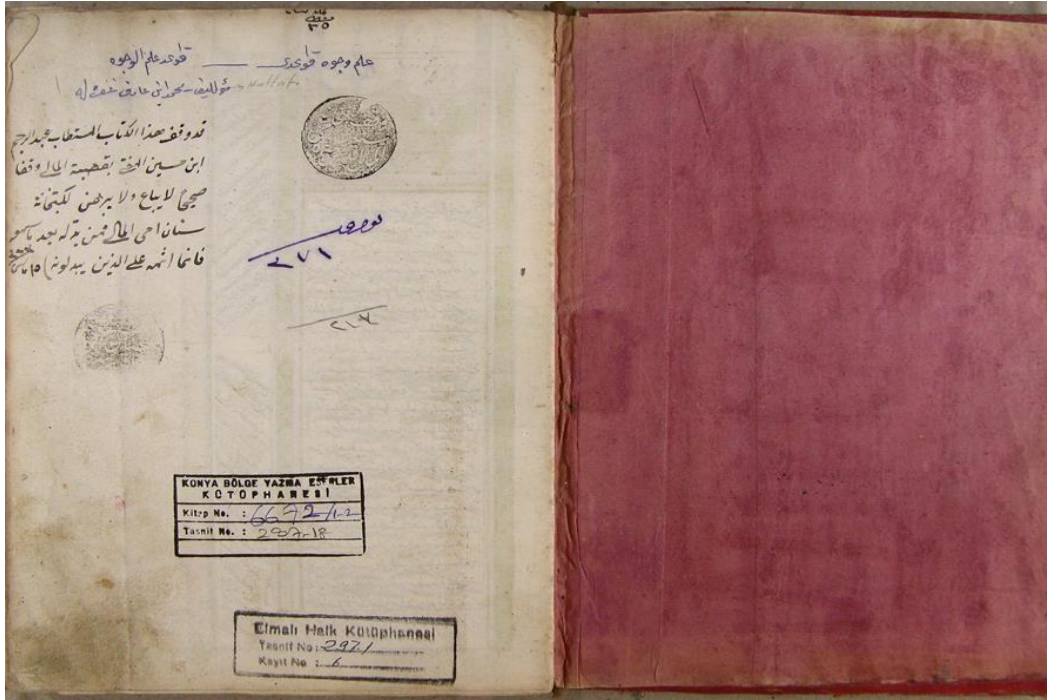 ٣٥
علم وجوه قواعدى — قواعد علم الوجوه
مؤلفى محمد بن عارف غفر له
قد وقف هذا الكتاب المستطاب عبد الرحيم
ابن حسين المفتى بقصبة المالى وقفا
صحيحا لا يباع ولا يرهن لكتبخانة
سنان امى المالى فمن بدله بعد ما سمعه
فانما اثمه على الذين يبدلونه ١٥
نومرو
٢٧١
KONYA BÖLGE YAZMA ESERLER
KÜTÜPHANESİ
Kitap No. : 6672/1-2
Tasnif No. : 297-18
Elmalı Halk Kütüphanesi
Tasnif No : 297.1
Kayıt No : 6